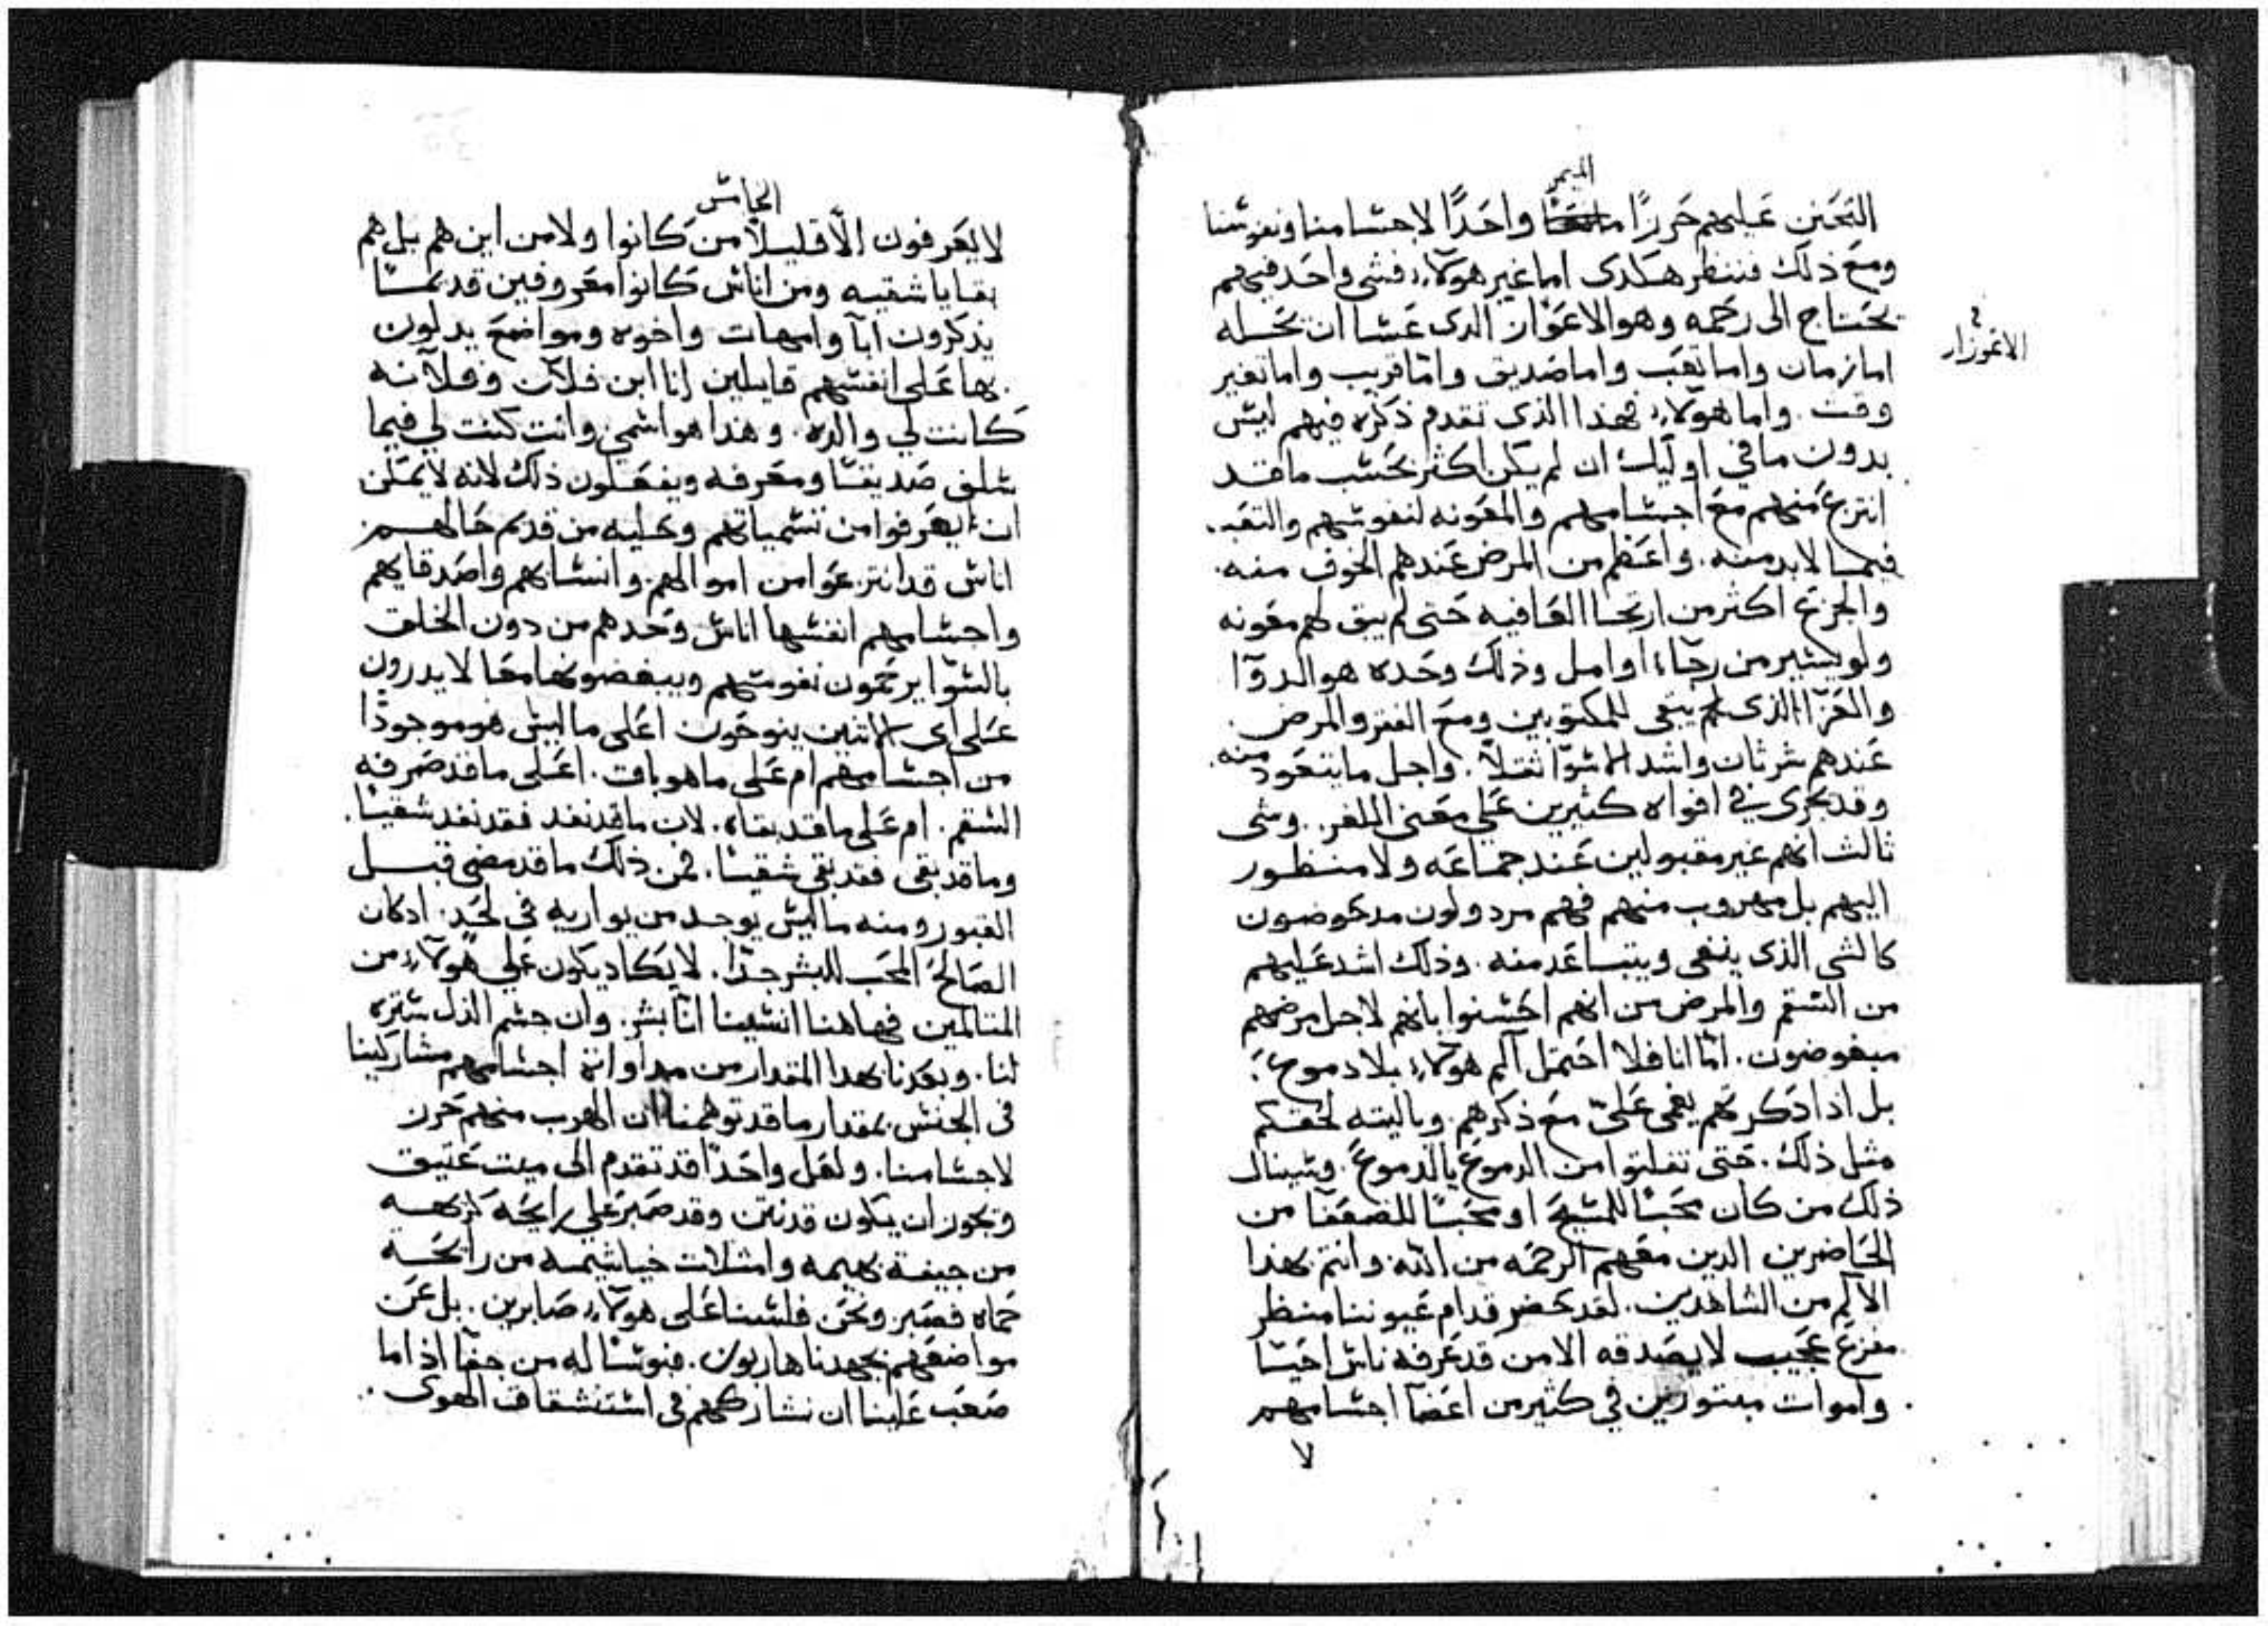 الميمر
التحنن عليهم حرزًا واحدًا لاجسامنا ونفوسنا
ومع ذلك فننظر هكدى اما غير هولاء فشى واحد فيهم
يحتاج الى رحمه وهو الاعواز الدى عسا ان تحله
في
الاعوزار
اما زمان واما تعب واما صديق واما قريب واما تغير
وقت. واما هولاء فهذا الذى تقدم ذكره فيهم ليس
بدون ما في اوليك ان لم يكن اكثر بحسب ما قد
انتزع منهم مع اجسامهم والمعونه لنفوسهم والتعب
فيما لا بد منه. واعظم من المرض عندهم الخوف منه.
والجزع اكثر من ارتجا العافيه حتى لم يبق لهم معونه
ولو يسير من رجاء او امل وذلك وحده هو الدوآ
والعزآ الذى لم يبقى للمكتوبين ومع الفقر والمرض
عندهم شر ثان واشد الاسوآ ثقلاً. واجل ما يتعود منه
وقد يجرى في افواه كثيرين على معنى اللغز. وشى
ثالث انهم غير مقبولين عند جماعه ولا منظور
اليهم بل مهروب منهم فهم مردولون مدحوضون
كالشى الذى ينفى ويتباعد منه. وذلك اشد عليهم
من السقم والمرض من انهم احسنوا بانهم لاجل مرضهم
مبغوضون. امّا انا فلا احتمل آلم هولاء بلا دموع
بل اذا دكرتهم يغمى علىّ مع ذكرهم. وياليته لحقكم
مثل ذلك. حتى تفلتوا من الدموع بالدموع. وسينال
ذلك من كان محبًا للمسيح او محبًا للضعفآ من
الحاضرين الدين معهم الرحمه من الله وانتم بهذا
الآلم من الشاهدين. لقد يحضر قدام عيوننا منظر
مفزع عجيب لا يصدقه الا من قد عرفه ناس احيآ
واموات مبتورين في كثير من اعضآ اجسامهم
لا
الخامس
لا يعرفون الّا قليلاً من كانوا ولا من اين هم بل هم
بقايا شقيه ومن اناس كانوا معروفين قديمًا
يذكرون ابآ وامهات واخوه ومواضع يدلون
بها على انفسهم قايلين انا ابن فلان وفلانه
كانت لي والده. وهذا هو اسمي وانت كنت لي فيما
سلف صديقًا ومعرفه ويفعلون ذلك لانه لا يمكن
ان يعرفوا من تسمياتهم وتحليه من قديم حالهم
اناس قد انتزعوا من اموالهم وانسابهم واصدقايهم
واجسامهم انفسها اناس وحدهم من دون الخلق
بالسوّا يرحمون نفوسهم ويبغضونها معًا لا يدرون
على اى الاثنين ينوحون اعلى ما ليس هو موجودًا
من اجسامهم ام على ما هو باق. اعلى ما قد صرفه
السقم. ام على ما قد بقاه. لان ما قد نفد فقد نفد شقيًا.
وما قد بقى فقد بقى شقيًا. فمن ذلك ما قد مضى قبل
القبور ومنه ما ليس يوجد من يواريه في لحد. اد كان
الصالح المحب للبشر جدًا. لا يكاد يكون على هولاء من
المتالمين فهاهنا انسينا انّا بشر. وان جسم الذل ستره
لنا. وبعدنا بهدا المقدار من مداواة اجسامهم مشاركينا
في الجنس بمقدار ما قد توهمنا ان الهرب منهم حرز
لاجسامنا. ولعل واحدًا قد تقدم الى ميت عتيق
ويجوز ان يكون قد نتن وقد صبر على رايحة كريهه
من جيفة بهيمه وامتلات خياشيمه من رايحة
حماه فصبر ونحن فلسنا على هولاء صابرين. بل عن
مواضعهم بجهدنا هاربون. فبوسًا له من جفآ اذ اما
صعب علينا ان نشاركهم في استنشقاق الهوى.